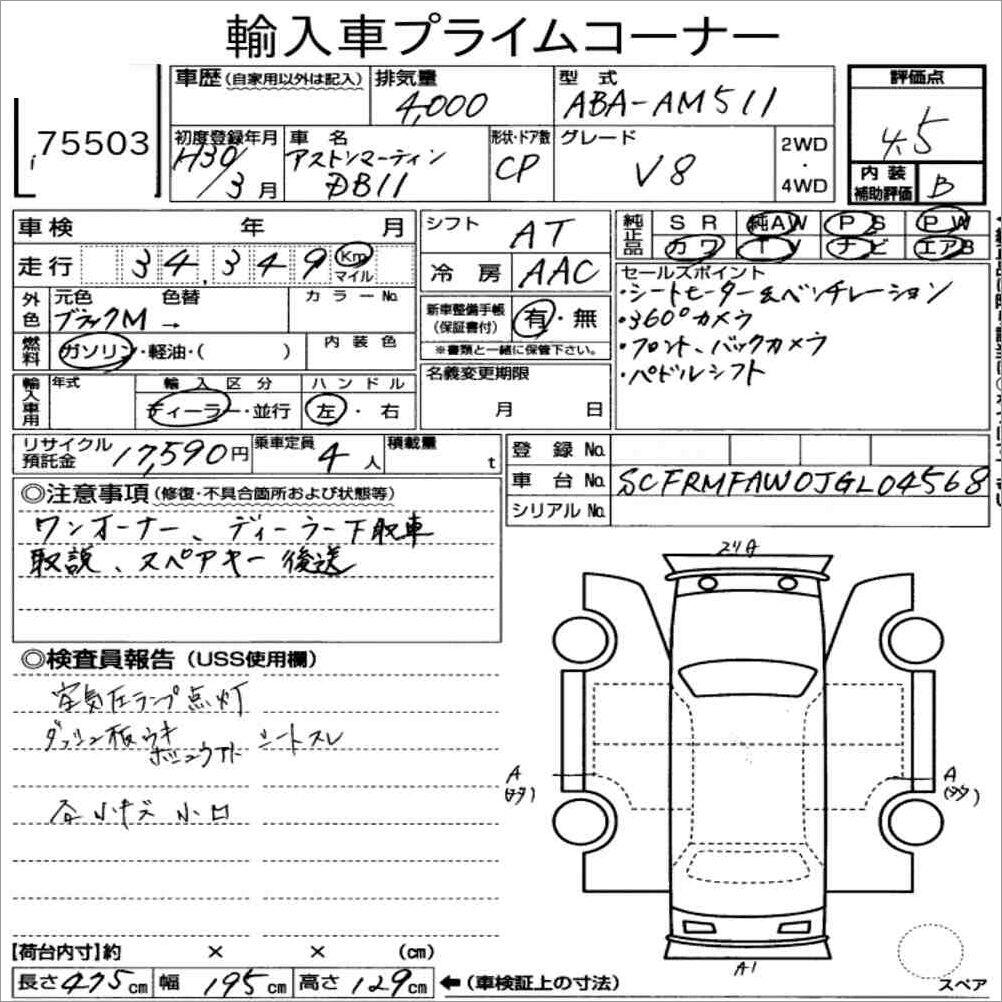 輸入車プライムコーナー
75503
車歴(自家用以外は記入) 排気量 4,000 型式 ABA-AM511 評価点 4.5
初度登録年月 H30/3月 車名 アストンマーティン DB11 形状・ドア数 CP グレード V8 2WD・4WD
内装補助評価 B
車検 年 月
走行 34,349 Km マイル
外色 元色 ブラックM → 色替 カラーNo.
燃料 ガソリン・軽油・( ) 内装色
輸入車用 年式 輸入区分 ディーラー・並行 ハンドル 左・右
シフト AT
冷房 AAC
新車整備手帳(保証書付) 有・無
※書類と一緒に保管下さい。
名義変更期限
月 日
純正品 SR 純AW PS PW
カワ TV ナビ エアB
セールスポイント
・シートヒーター&ベンチレーション
・360°カメラ
・フロント、バックカメラ
・パドルシフト
リサイクル預託金 17,590円 乗車定員 4人 積載量 t
登録No.
車台No. SCFRMFAW0JGL04568
シリアルNo.
◎注意事項(修復・不具合箇所および状態等)
ワンオーナー、ディーラー下取車
取説、スペアキー後送
◎検査員報告(USS使用欄)
空気圧ランプ点灯
ダッシュ板ウキ シートスレ
小キズ 小凹
A
A
A1
【荷台内寸】約 × × (cm)
長さ475cm 幅195cm 高さ129cm ←(車検証上の寸法)
スペア